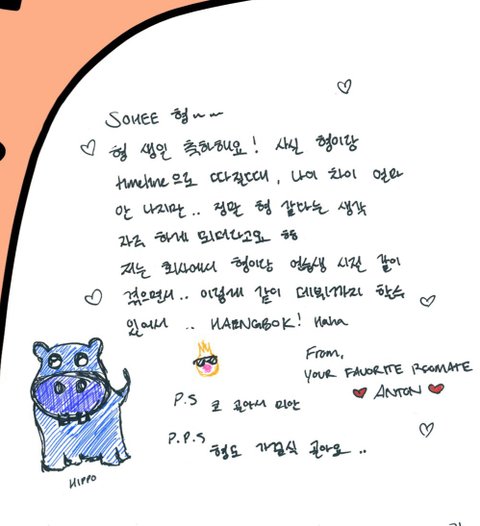 SOHEE 형~~
형 생일 축하해요! 사실 형이랑
timeline으로 따질때, 나이 차이 얼마
안 나지만.. 정말 형 같다는 생각
자주 하게 되더라고요 ㅎㅎ
저는 회사에서 형이랑 연습생 시절 같이
겪으면서.. 이렇게 같이 데뷔까지 할수
있어서 .. HAENGBOK! Haha
From,
YOUR FAVORITE ROOMATE
ANTON
P.S 코 골아서 미안
P.P.S 형도 가끔식 골아요..
HIPPO